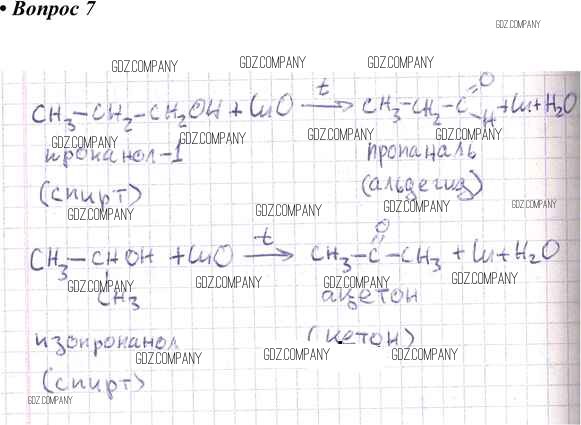 • Вопрос 7
GDZ.COMPANY
GDZ.COMPANY GDZ.COMPANY GDZ.COMPANY
O
CH₃–CH₂–CH₂OH + CuO →t CH₃–CH₂–C + Cu + H₂O
H
GDZ.COMPANY GDZ.COMPANY GDZ.COMPANY GDZ.COMPANY
пропанол-1 пропаналь
(спирт) (альдегид)
GDZ.COMPANY GDZ.COMPANY GDZ.COMPANY GDZ.COMPANY
O
CH₃–CHOH + CuO →t CH₃–C–CH₃ + Cu + H₂O
GDZ.COMPANY GDZ.COMPANY GDZ.COMPANY GDZ.COMPANY
CH₃ ацетон
изопропанол (кетон)
GDZ.COMPANY GDZ.COMPANY GDZ.COMPANY
(спирт)
GDZ.COMPANY